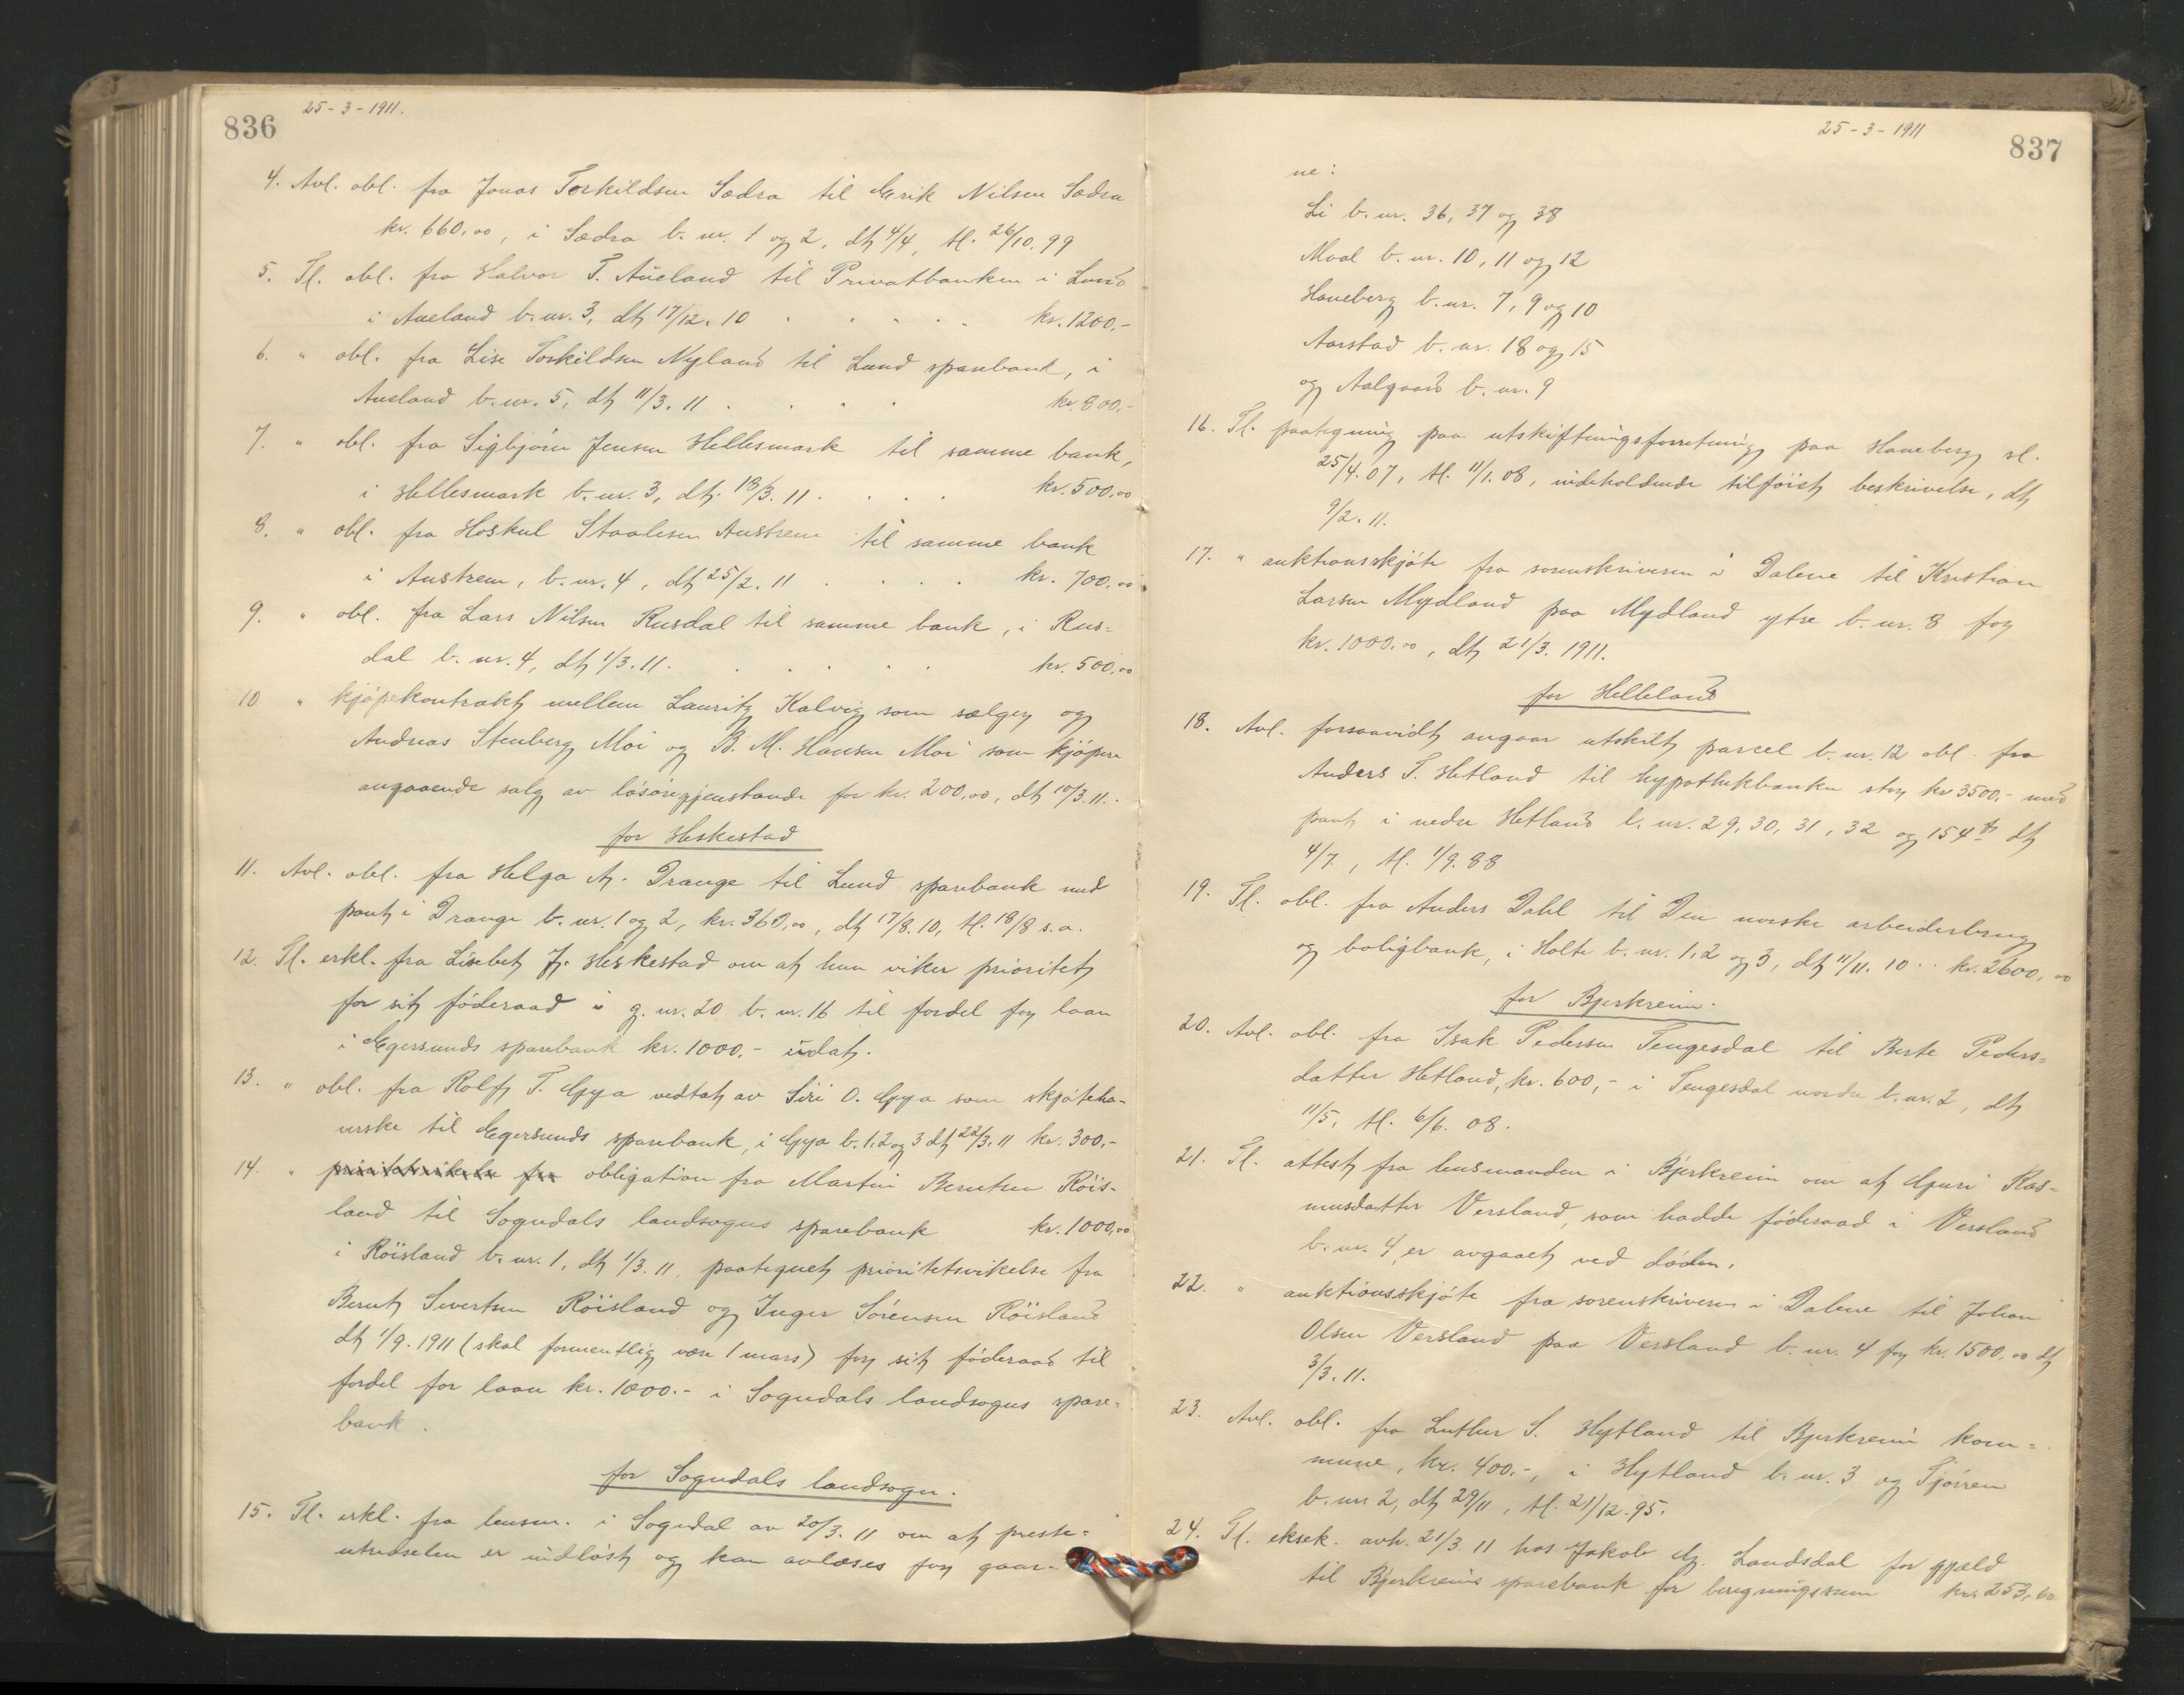 836
25-3-1911.
4. Avl. obl. fra Jonas Torkildsen Sædra til Eerik Nilsen Sædra
kr. 660.00, i Sædra b. nr. 1 og 2, dt 4/4, tl. 26/10.99
5. Tl. obl. fra Halvor T. Aueland til Privatbanken i Lund
i Aueland b. nr. 3, dt 17/12.10 . . . . . kr. 1200.-
6. " obl. fra Lise Torkildsen Nyland til Lund sparebank, i
Aueland b. nr. 5, dt 11/3.11 . . . . kr. 800.-
7. " obl. fra Sigbjörn Jensen Hellesmark til samme bank,
i Hellesmark b. nr. 3, dt. 18/3.11. . . . kr. 500,00
8. " obl. fra Hoskul Staalesen Austrem til samme bank
i Austrem, b. nr. 4, dt 25/2.11 . . . . kr. 700,00
9. " obl. fra Lars Nilsen Rusdal til samme bank, i Rus=
dal b. nr. 4, dt 1/3.11. . . . . . kr. 500,00
10 " kjøpekontrakt mellem Lauritz Kalvig som sælger og
Andreas Stenberg Moi og B. M. Hansen Moi som kjøpere
angaaende salg av løsøregjenstande for kr. 200,00, dt 10/3.11..
for Heskestad
11. Avl. obl. fra Helga A. Drange til Lund sparebank med
pant i Drange b. nr. 1 og 2, kr. 360,00, dt 17/8.10, tl. 18/8 s.a.
12. Tl. erkl. fra Lisebet J. Heskestad om at hun viker prioritet
for sit föderaad i g. nr. 20 b. nr. 16 til fordel for laan
i Egersunds sparebank kr. 1000.- udat.
13. " obl. fra Rolf T. Gya vedtat av Siri O. Gya som skjøteha-
verske til Egersunds sparebank, i Gya b. 1.2 og 3 dt 22/3.11 kr. 300.-
14. " prioritetsvikelse fra obligation fra Martin Berntsen Röis-
land til Sogndals landsogns sparebank kr. 1000,00
i Röisland b. nr. 1, dt 1/3.11, paategnet prioritetsvikelse fra
Bernt Sivertsen Röisland og Inger Sörensen Röisland
dt 1/9.1911 (skal formentlig være 1 mars) for sit föderaad til
fordel for laan kr. 1000.- i Sogndals landsogns spare-
bank.
for Sogndals landsogn.
15. Tl. erkl. fra lensm. i Sogndal av 20/3.11 om at preste=
utredselen er indløst og kan avlæses for gaar-
25-3-1911
837
ne:
Li b. nr. 36, 37 og 38
Moal b. nr. 10, 11 og 12
Haneberg b. nr. 7, 9 og 10
Aarstad b. nr. 18 og 15
og Aalgaard b. nr. 9
16. Tl. paategning paa utskiftningsforretning paa Haneberg sl.
25/4.07, tl. 11/1.08, indeholdende tilføiet beskrivelse, dt
9/2.11.
17. " auktionsskjøte fra sorenskriveren i Dalene til Kristian
Larsen Mydland paa Mydland ytre b. nr. 8 for
kr. 1000.00, dt 21/3. 1911.
for Helleland
18. Avl. forsaavidt angaar utskilt parcel b. nr. 12 obl. fra
Anders T. Hetland til hypothekbanken stor kr 3500,- med
pant i nedre Hetland l. nr. 29, 30, 31, 32 og 154 b dt
4/7, tl. 1/9.88
19. Tl. obl. fra Anders Dahl til Den norske arbeiderbrug
og boligbank, i Holte b. nr. 1, 2 og 3, dt 11/11.10 .. kr. 2600,00
for Bjerkreim.
20. Avl. obl. fra Isak Pedersen Tengesdal til Berte Peders=
datter Hetland, kr. 600,- i Tengesdal nordre b. nr. 2, dt
11/5, tl. 6/6.08.
21. Tl. attest fra lensmanden i Bjerkreim om at Guri Ras-
musdatter Versland, som hadde föderaad i Versland
b. nr. 4, er avgaaet ved døden.
22. " auktionsskjøte fra sorenskriveren i Dalene til Johan
Olsen Versland paa Versland b. nr. 4 for kr. 1500,00 dt
3/3.11.
23. Avl. obl. fra Luther S. Hytland til Bjerkreim kom=
mune, kr. 400.-, i Hytland b. nr. 3 og Tjörren
b. nr. 2, dt 29/11, tl. 21/12.95.
24. Tl. eksek. avh. 21/3.11 hos Jakob G. Landsdal for gjæld
til Bjerkreims sparebank for beregningssum kr. 253,60